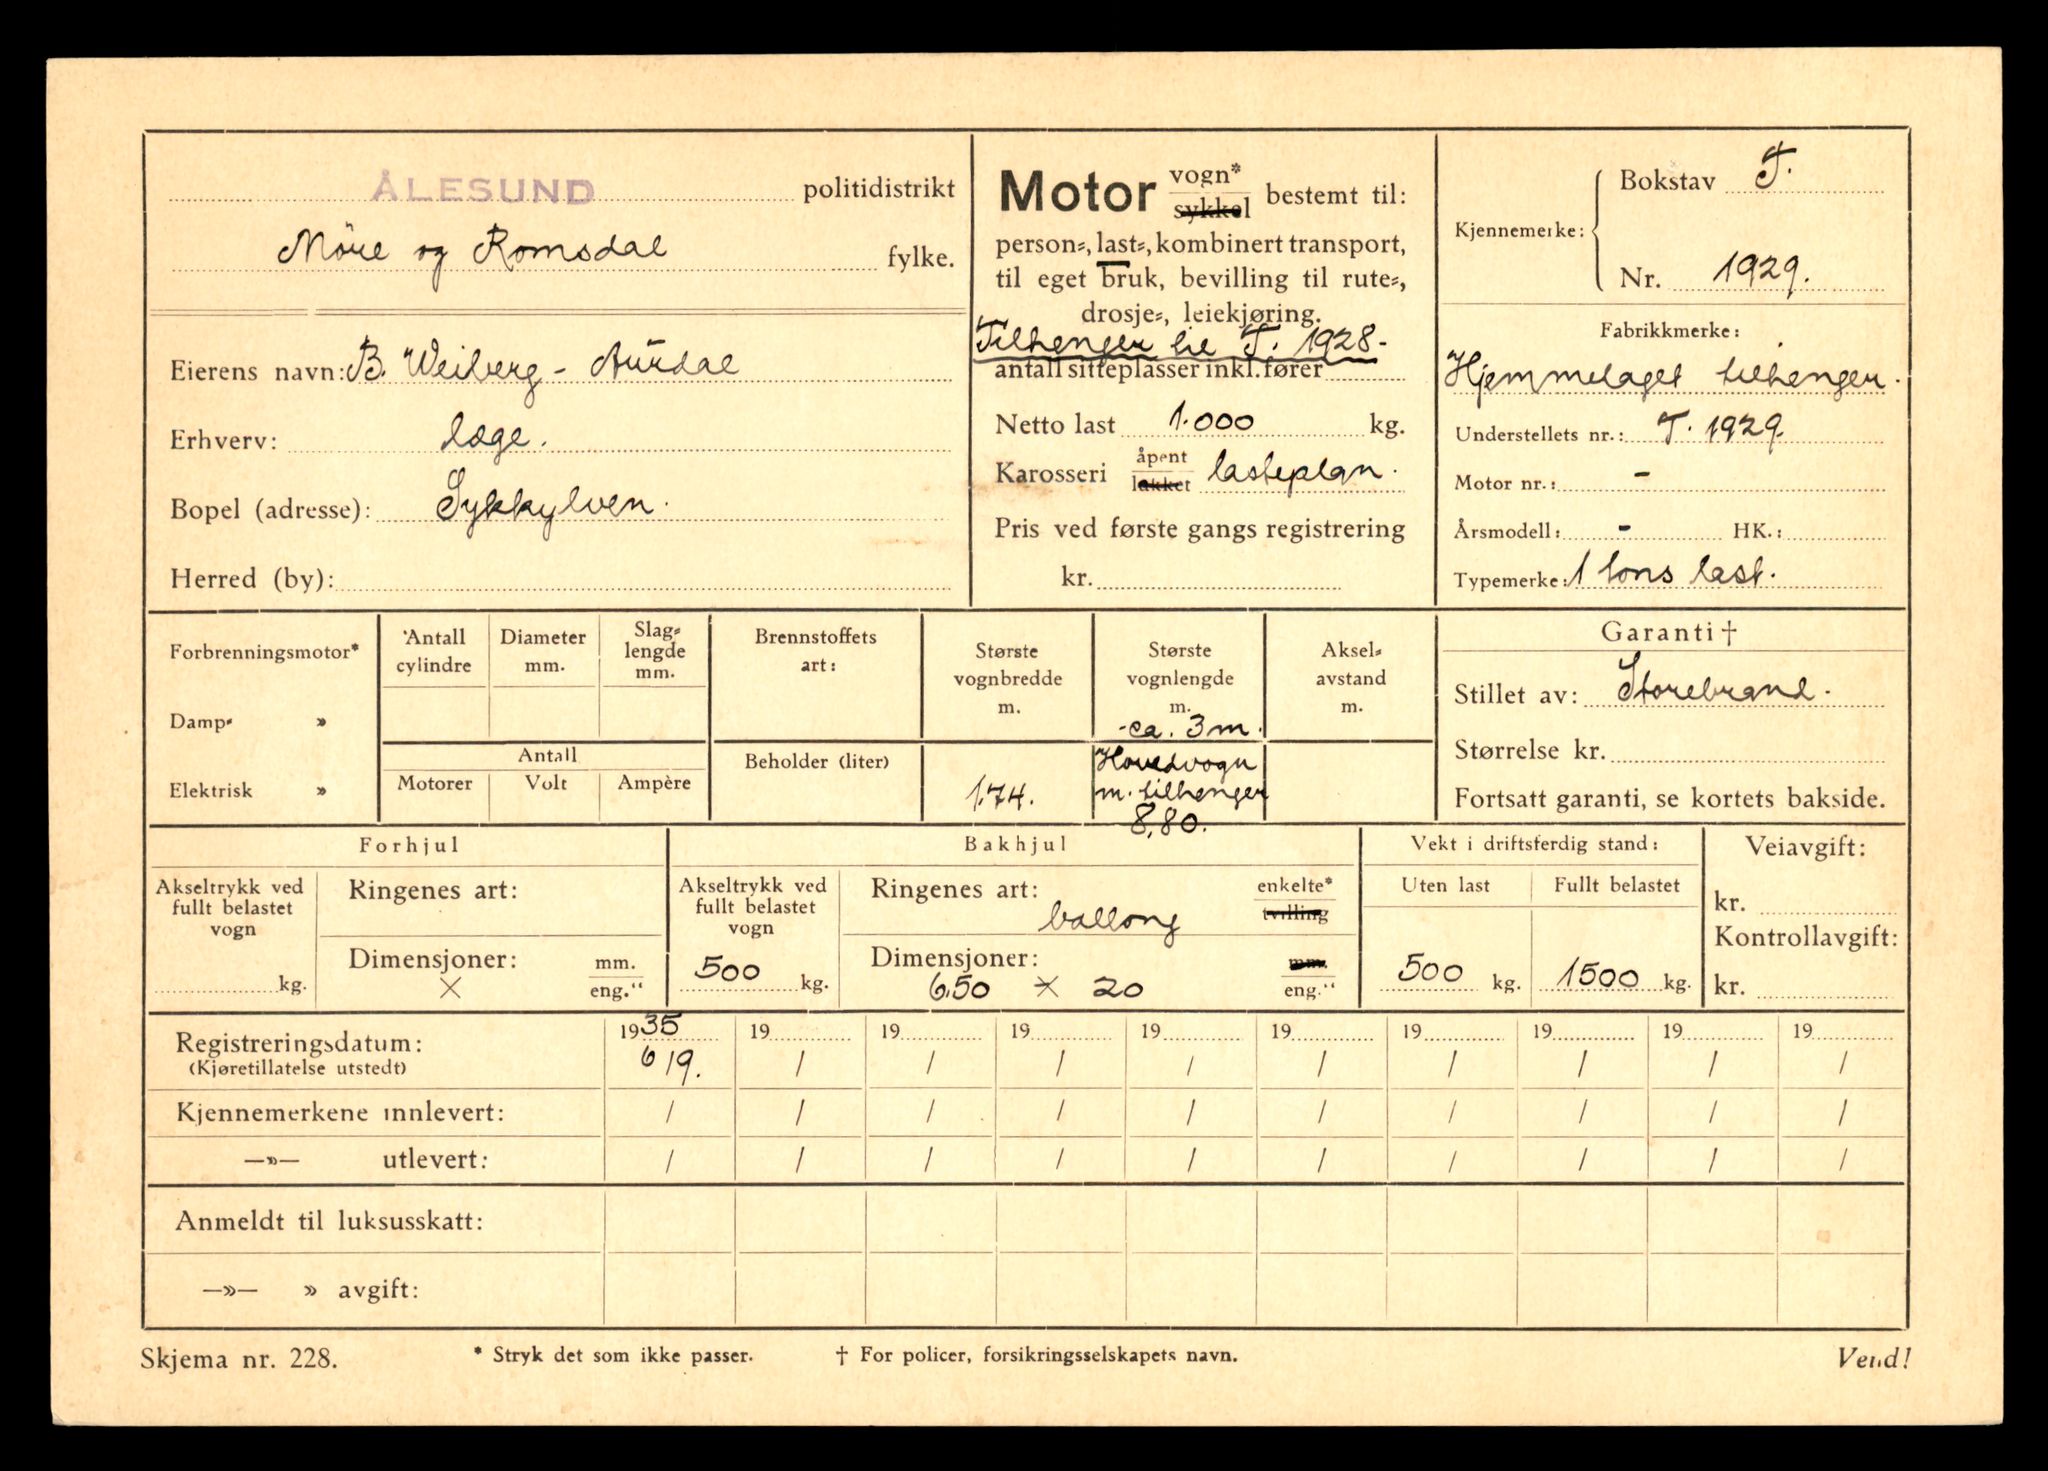 ÅLESUND politidistrikt
Möre og Romsdal fylke.
Eierens navn: B. Weiberg - Aurdal
Erhverv: læge.
Bopel (adresse): Sykkylven.
Herred (by):
Motor vogn* sykkel bestemt til:
person-, last-, kombinert transport,
til eget bruk, bevilling til rute-,
drosje-, leiekjøring.
Tilhenger til T. 1928-
antall sitteplasser inkl. fører
Netto last 1.000 kg.
Karosseri åpent lukket lasteplan.
Pris ved første gangs registrering
kr.
Kjennemerke:
Bokstav T.
Nr. 1929.
Fabrikkmerke:
Hjemmelaget tilhenger.
Understellets nr.: T. 1929.
Motor nr.: -
Årsmodell: - HK.:
Typemerke: 1 tons last.
Forbrenningsmotor*
Damp- »
Elektrisk »
Antall cylindre
Diameter mm.
Slaglengde mm.
Antall
Motorer Volt Ampère
Brennstoffets art:
Beholder (liter)
Største vognbredde m.
1.74.
Største vognlengde m.
- ca. 3 m.
Hovedvogn
m. tilhenger
8,80.
Aksel-
avstand
m.
Garanti †
Stillet av: Storebrand.
Størrelse kr.
Fortsatt garanti, se kortets bakside.
Forhjul
Akseltrykk ved
fullt belastet
vogn
kg.
Ringenes art:
Dimensjoner: mm.
× eng."
Bakhjul
Akseltrykk ved
fullt belastet
vogn
500 kg.
Ringenes art: enkelte*
ballong tvilling
Dimensjoner: mm.
6,50 × 20 eng."
Vekt i driftsferdig stand:
Uten last Fullt belastet
500 kg. 1500 kg.
Veiavgift:
kr.
Kontrollavgift:
kr.
Registreringsdatum: 1935 19 19 19 19 19 19 19 19 19
(Kjøretillatelse utstedt) 6/9. / / / / / / / / /
Kjennemerkene innlevert: / / / / / / / / / /
—»— utlevert: / / / / / / / / / /
Anmeldt til luksusskatt:
—»— » avgift:
Skjema nr. 228. * Stryk det som ikke passer. † For policer, forsikringsselskapets navn. Vend!